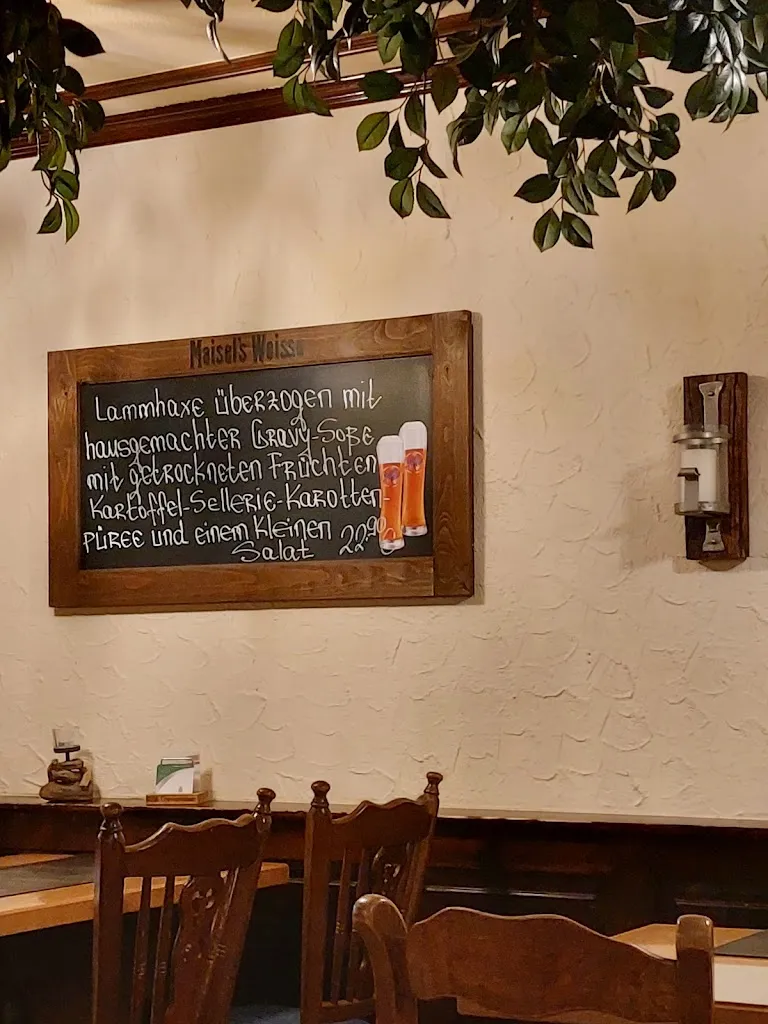 Maisel's Weisse
Lammhaxe überzogen mit
hausgemachter Gravy-Soße
mit getrockneten Früchten
Kartoffel-Sellerie-Karotten-
püree und einem kleinen
Salat 22,90